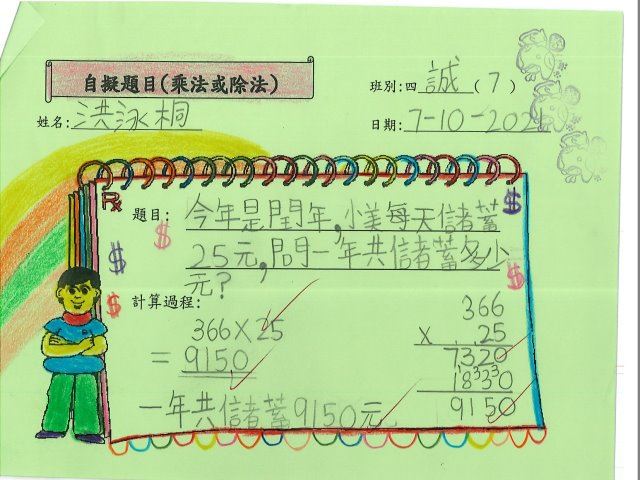 自擬題目(乘法或除法)
班別:四 誠 ( 7 )
姓名: 洪泳桐
日期: 7-10-2024
Rx
題目: 今年是閏年,小美每天儲蓄
25元,問一年共儲蓄多少
元?
計算過程:
366×25
= 9150
366
× 25
7320
1830
9150
一年共儲蓄9150元
$
$
$
$
$